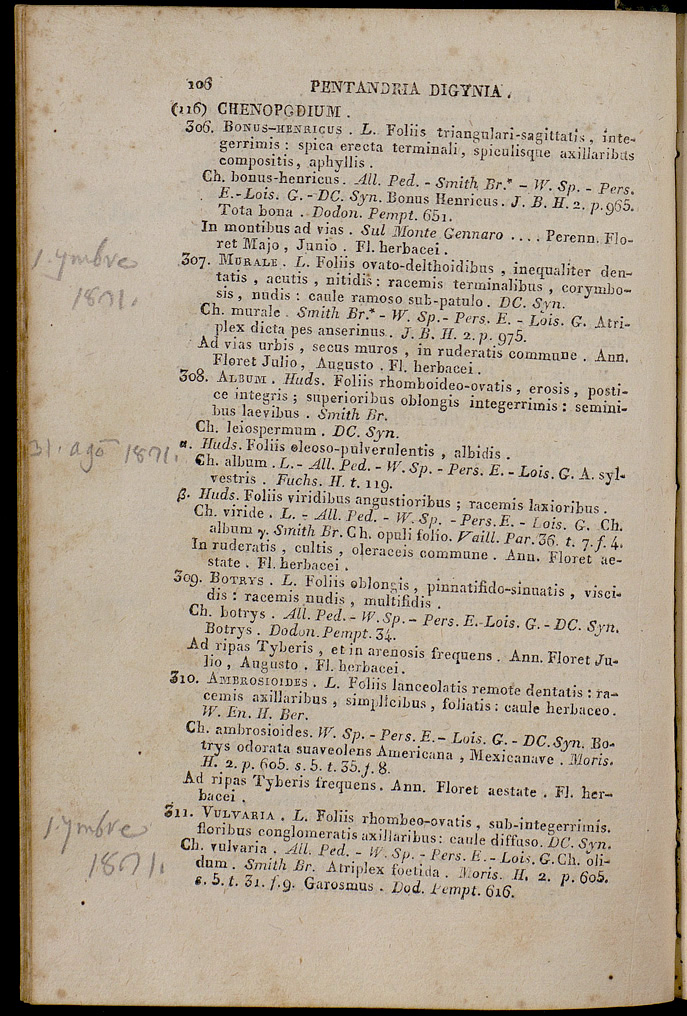 106 PENTANDRIA DIGYNIA .
(116) CHENOPODIUM .
306. BONUS-HENRICUS . L. Foliis triangulari-sagittatis , inte-
gerrimis : spica erecta terminali, spiculisque axillaribus
compositis, aphyllis .
Ch. bonus-henricus. All. Ped. - Smith Br.* - W. Sp. - Pers.
E.-Lois. G. - DC. Syn. Bonus Henricus. J. B. H. 2. p. 965.
Tota bona . Dodon. Pempt. 651.
In montibus ad vias . Sul Monte Gennaro .... Perenn. Flo-
ret Majo , Junio . Fl. herbacei .
307. MURALE . L. Foliis ovato-delthoidibus , inequaliter den-
tatis , acutis , nitidis : racemis terminalibus , corymbo-
sis , nudis : caule ramoso sub-patulo . DC. Syn.
Ch. murale . Smith Br.* - W. Sp. - Pers. E. - Lois. G. Atri-
plex dicta pes anserinus . J. B. H. 2. p. 975.
Ad vias urbis , secus muros , in ruderatis commune . Ann.
Floret Julio, Augusto . Fl. herbacei .
1. ymbre
1871.
308. ALBUM . Huds. Foliis rhomboideo-ovatis , erosis , posti-
ce integris ; superioribus oblongis integerrimis : semini-
bus laevibus . Smith Br.
Ch. leiospermum . DC. Syn.
α. Huds. Foliis oleoso-pulverulentis , albidis .
31. ago 1871.
Ch. album . L. - All. Ped. - W. Sp. - Pers. E. - Lois. G. A. syl-
vestris . Fuchs. H. t. 119.
β. Huds. Foliis viridibus angustioribus ; racemis laxioribus .
Ch. viride . L. - All. Ped. - W. Sp. - Pers. E. - Lois. G. Ch.
album γ. Smith Br. Ch. opuli folio. Vaill. Par. 36. t. 7. f. 4.
In ruderatis , cultis , oleraceis commune . Ann. Floret ae-
state . Fl. herbacei .
309. BOTRYS . L. Foliis oblongis , pinnatifido-sinuatis , visci-
dis : racemis nudis , multifidis .
Ch. botrys . All. Ped. - W. Sp. - Pers. E.-Lois. G. - DC. Syn.
Botrys . Dodon. Pempt. 34.
Ad ripas Tyberis , et in arenosis frequens . Ann. Floret Ju-
lio , Augusto . Fl. herbacei .
310. AMBROSIOIDES . L. Foliis lanceolatis remote dentatis : ra-
cemis axillaribus , simplicibus , foliatis : caule herbaceo.
W. En. H. Ber.
Ch. ambrosioides. W. Sp. - Pers. E. - Lois. G. - DC. Syn. Bo-
trys odorata suaveolens Americana , Mexicanave . Moris.
H. 2. p. 605. s. 5. t. 35. f. 8.
Ad ripas Tyberis frequens. Ann. Floret aestate . Fl. her-
bacei .
311. VULVARIA . L. Foliis rhombeo-ovatis , sub-integerrimis.
floribus conglomeratis axillaribus: caule diffuso. DC. Syn.
Ch. vulvaria . All. Ped. - W. Sp. - Pers. E. - Lois. G. Ch. oli-
dum . Smith Br. Atriplex foetida . Moris. H. 2. p. 605.
s. 5. t. 31. f. 9. Garosmus . Dod. Pempt. 616.
1. ymbre
1871.